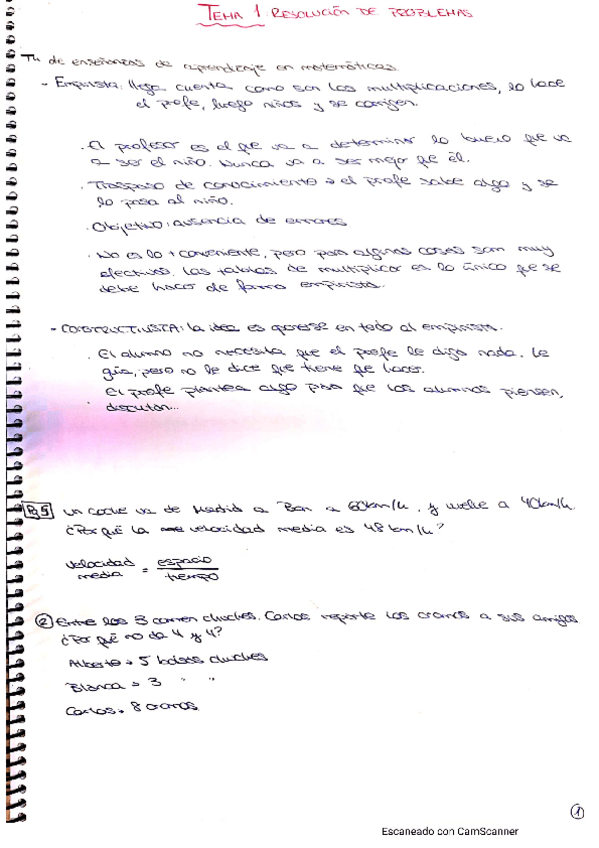 TEMA 1. RESOLUCIÓN DE PROBLEMAS
de enseñanzas de aprendizaje en matemáticas.
- Empirista: llega cuenta como son las multiplicaciones, lo hace
el profe, luego niños y se corrigen.
. El profesor es el que va a determinar lo bueno que va
a ser el niño. Nunca va a ser mejor que él.
. Traspaso de conocimiento → el profe sabe algo y se
lo pasa al niño.
. Objetivo: ausencia de errores
. No es lo + conveniente, pero para algunas cosas son muy
efectivos. Las tablas de multiplicar es lo único que se
debe hacer de forma empirista.
- CONSTRUCTIVISTA: la idea es oponerse en todo al empirista.
. El alumno no necesita que el profe le diga nada. Le
guía, pero no le dice que tiene que hacer.
El profe plantea algo para que los alumnos piensen,
discutan...
Pg 5 un coche va de Madrid a Bcn a 60km/h, y vuelve a 40km/h.
¿Por qué la velocidad media es 48 km/h?
velocidad media = espacio / tiempo
② Entre los 3 comen chuches. Carlos reparte los cromos a sus amigos
¿Por qué no da 4 y 4?
Alberto → 5 bolsas chuches
Blanca → 3 " "
Carlos → 8 cromos
1
Escaneado con CamScanner